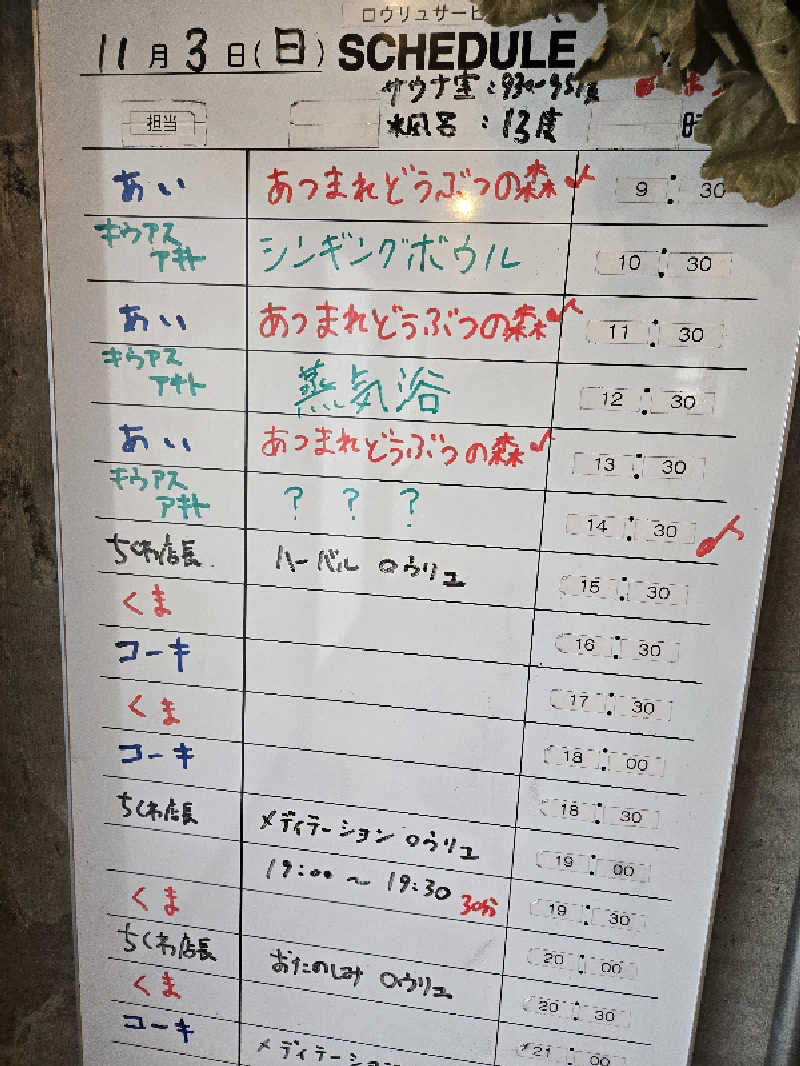 ロウリュサービ
11月3日(日) SCHEDULE
サウナ室:
水風呂:13度
担当
あい あつまれどうぶつの森 9:30
キウアス アキト シンギングボウル 10:30
あい あつまれどうぶつの森 11:30
キウアス アキト 蒸気浴 12:30
あい あつまれどうぶつの森 13:30
キウアス アキト ? ? ? 14:30
ちくわ店長. ハーバル ロウリュ 15:30
くま 16:30
コーキ 17:30
くま 18:00
コーキ 18:30
ちくわ店長 メディテーション ロウリュ 19:00
19:00~19:30 30分 19:30
くま 20:00
ちくわ店長 おたのしみ ロウリュ 20:30
くま 21:00
コーキ メディテーション